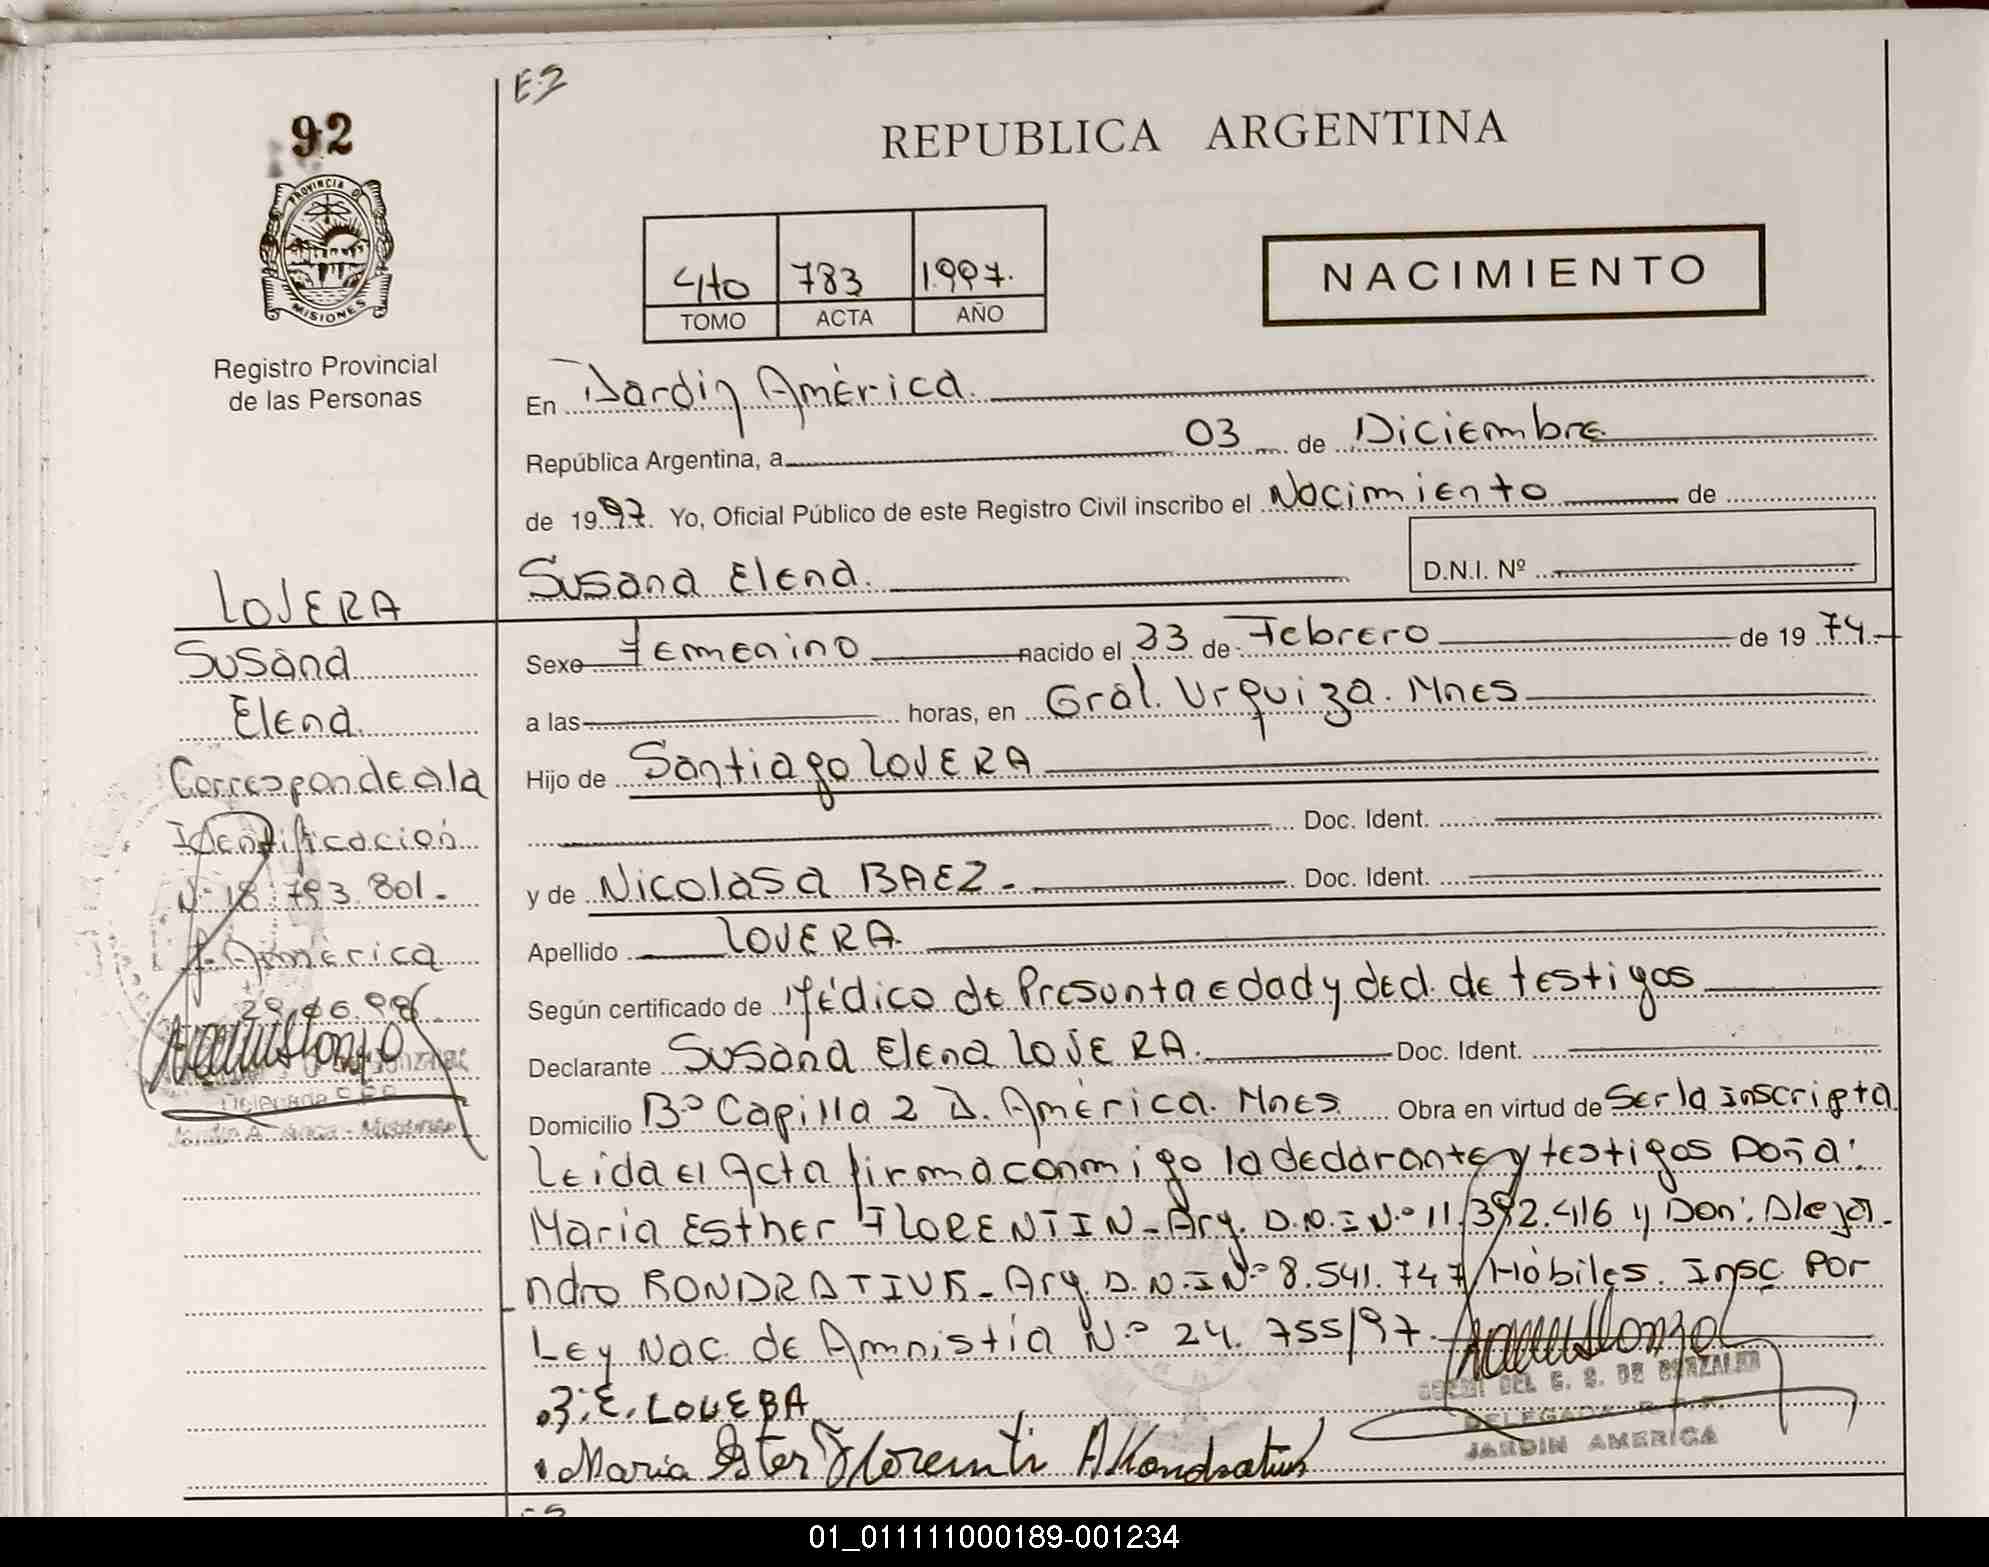 E2
92
PROVINCIA DE
MISIONES
Registro Provincial
de las Personas
REPUBLICA ARGENTINA
4to 783 1.997.
TOMO ACTA AÑO
NACIMIENTO
En Jardín América.
República Argentina, a 03 de Diciembre
de 1997. Yo, Oficial Público de este Registro Civil inscribo el Nacimiento de
Susana Elena.
D.N.I. Nº
LOVERA
Susana
Elena.
Corresponde a la
Identificación
Nº 18.793.801.
J. América
Sexo Femenino nacido el 23 de Febrero de 1974.
a las horas, en Gral. Urquiza. Mnes
Hijo de Santiago LOVERA
Doc. Ident.
y de Nicolasa BAEZ. Doc. Ident.
Apellido LOVERA.
Según certificado de Médico de Presunta edad y decl. de testigos
Declarante Susana Elena LOVERA. Doc. Ident.
Domicilio Bº Capilla 2 J. América. Mnes Obra en virtud de Ser la inscripta
Leida el Acta firma conmigo la declarante y testigos Doña:
Maria Esther FLORENTIN - Arg. D.N.I Nº 11.392.416 y Don: Aleja-
ndro KONDRATIUK - Arg. D.N.I Nº 8.541.747 Hábiles. Insc. Por
Ley Nac. de Amnistía Nº 24.755/97.
S.E. LOVERA
Maria Ester Florentin AKondratiuk
DEL C. S. DE GONZALEZ
DELEGADA R.P.P.
JARDIN AMERICA
01_011111000189-001234